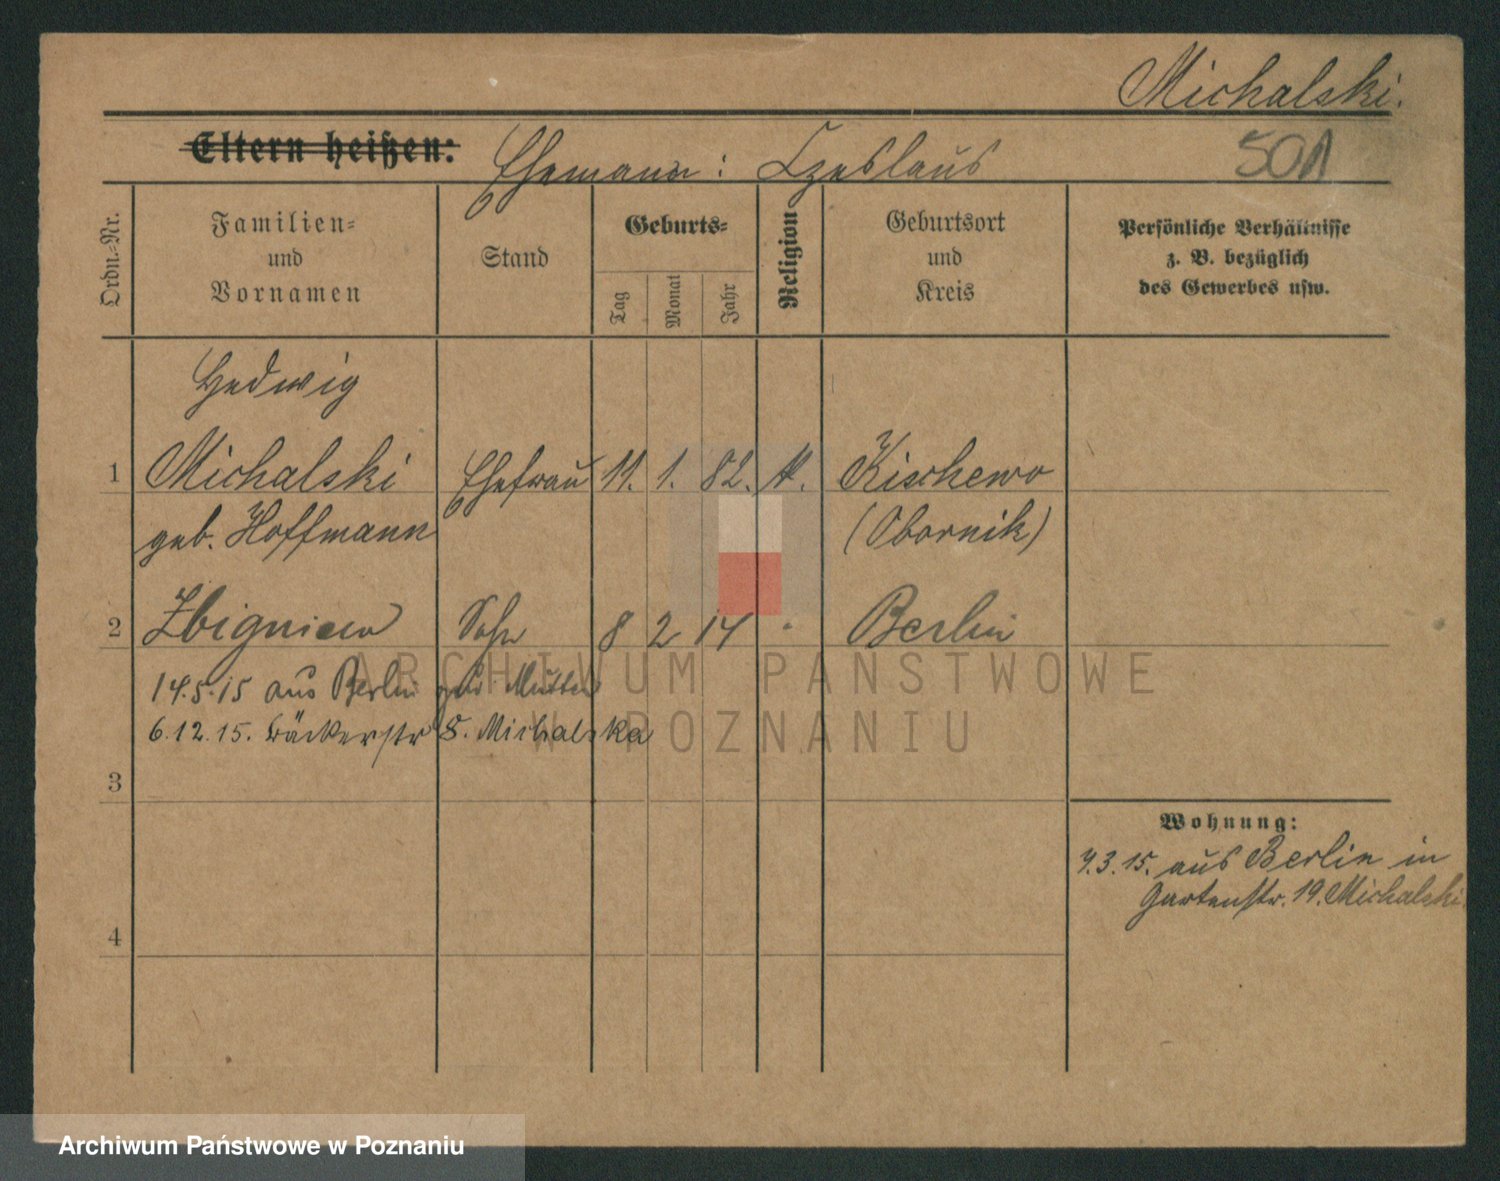 Michalski.
Eltern heißen: Ehemann: Czeslaus
501
Ordn.=Nr.
Familien=
und
Vornamen
Stand
Geburts=
Tag
Monat
Jahr
Religion
Geburtsort
und
Kreis
Persönliche Verhältnisse
z. B. bezüglich
des Gewerbes usw.
Hedwig
1 Michalski Ehefrau 11. 1. 82. k. Kischewo
geb. Hoffmann (Obornik)
2 Zbigniew Sohn 8 2 14 Berlin
14.5.15 aus Berlin zur Mutter
6.12.15. Bäckerstr 8. Michalska
3
Wohnung:
9.3.15. aus Berlin in
Gartenstr. 19. Michalski.
4
ARCHIWUM PAŃSTWOWE
W POZNANIU
Archiwum Państwowe w Poznaniu